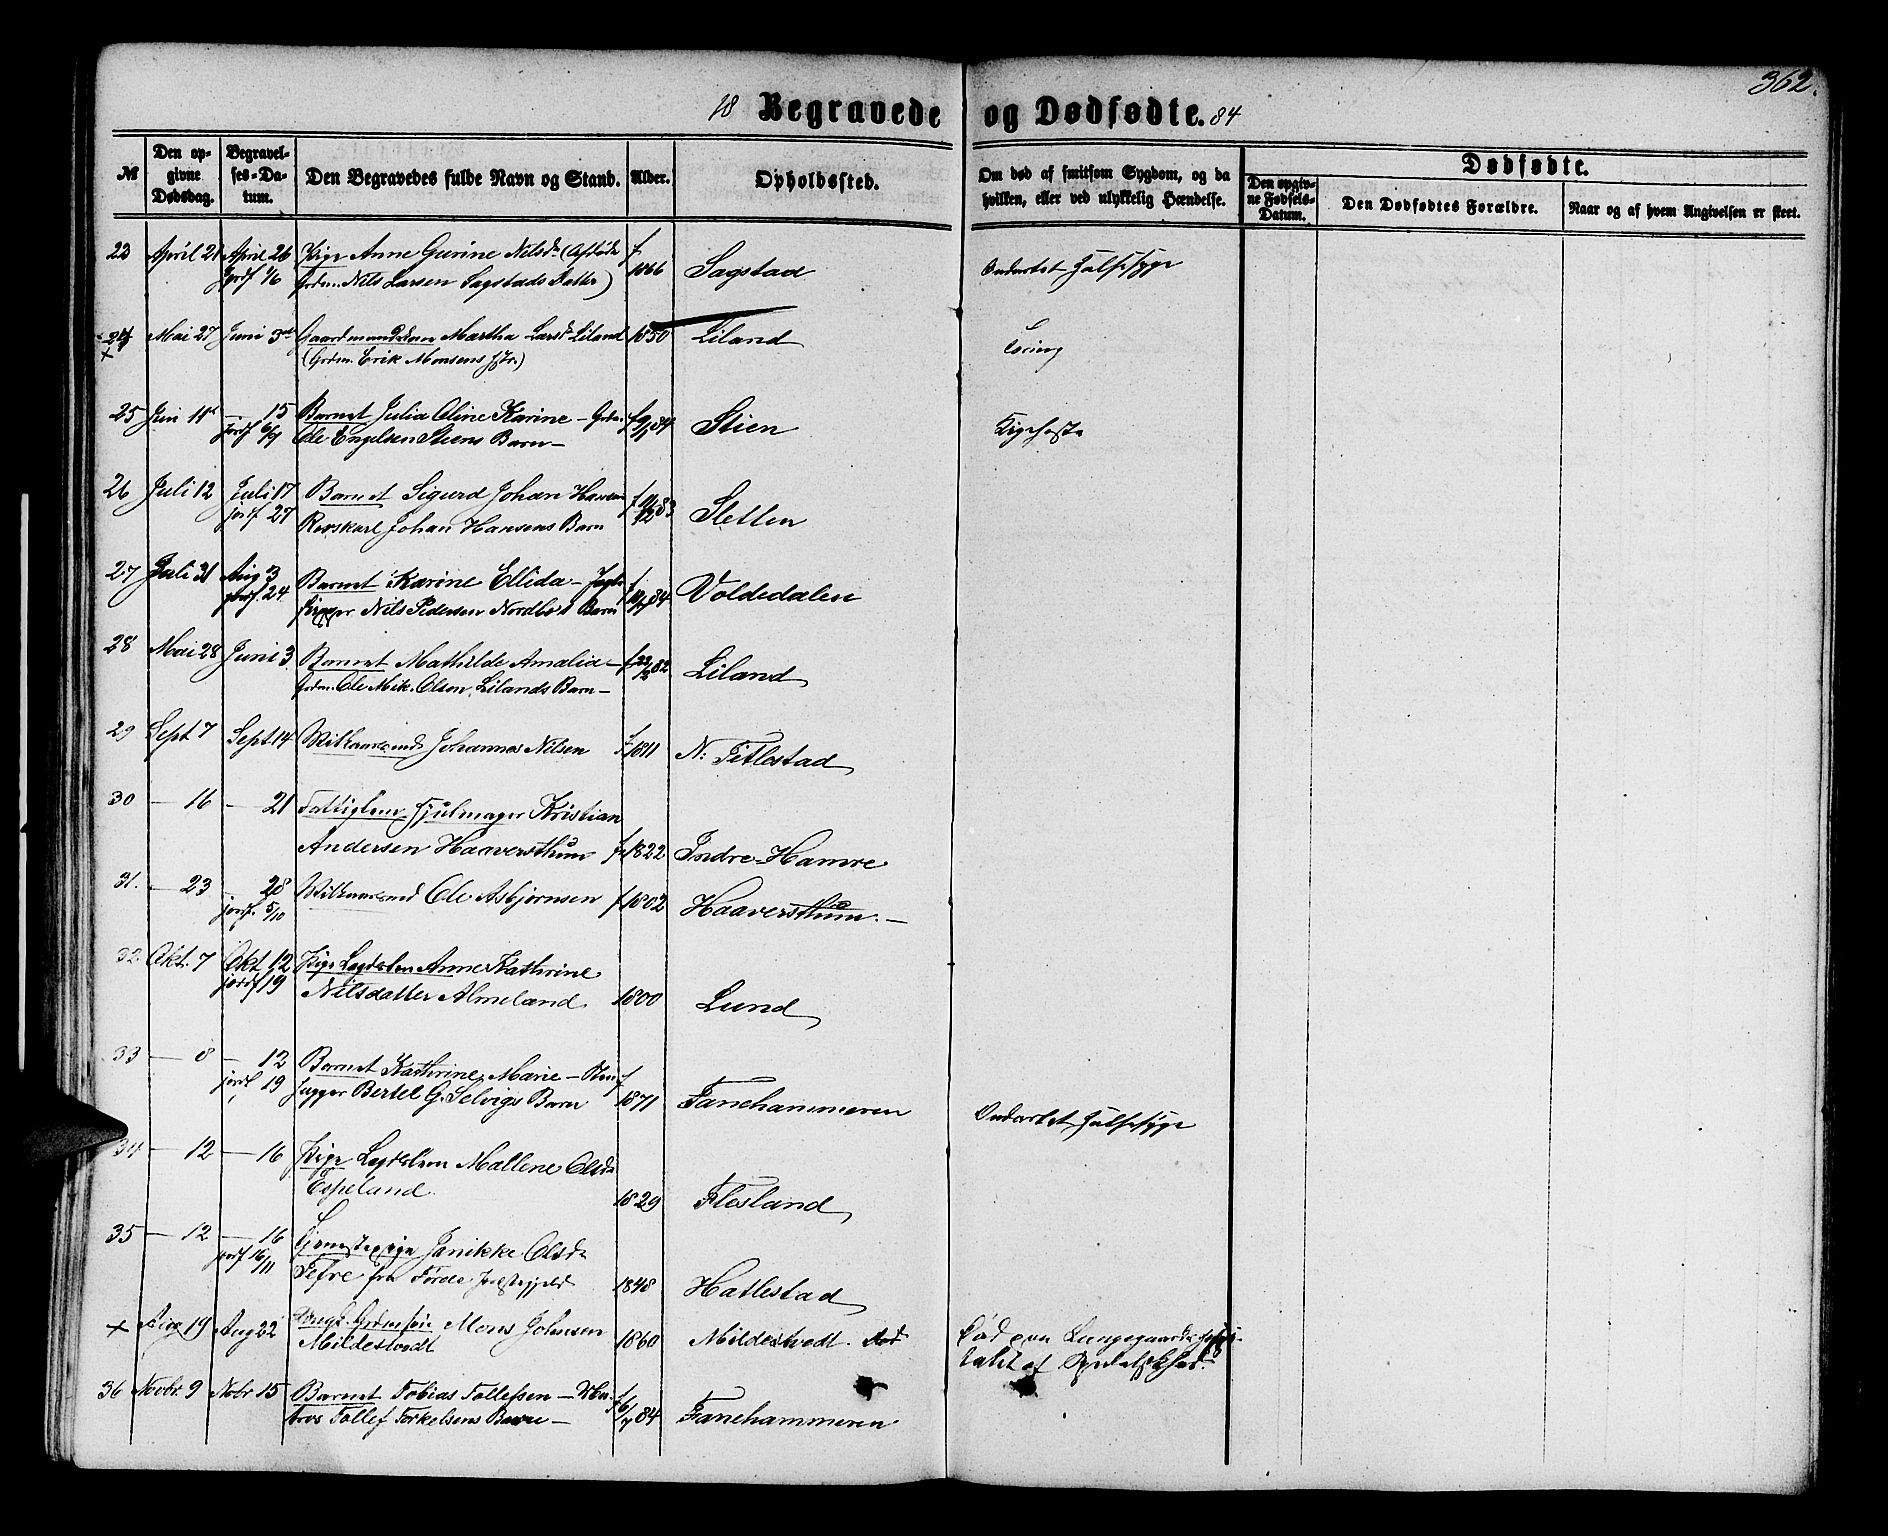 362.
18 Begravede og Dødfødte. 84
№ Den opgivne Dødsdag. Begravelses-Datum. Den Begravedes fulde Navn og Stand. Alder. Opholdssted. Om død af smitsom Sygdom, og da hvilken, eller ved ulykkelig Hændelse. Dødfødte.
Den opgivne Fødsels-Datum. Den Dødfødtes Forældre. Naar og af hvem Angivelsen er skeet.
23 April 21 April 26 Pige Anne Gurine Nilsdr (Afdøde f Sagstad Ondartet Halssyge
jordf 1/6 Grdm. Nils Larsen Sagstads Datter) 1866
24 Mai 27 Juni 3 Gaardmandskone Martha Larsdr Liland 1850 Liland
x (Grdm. Erik Monsens Hstr.) Tæring
25 Juni 11 — 15 Barnet Julia Oline Karine — Grdm. f 9/1 84 Stien Kighoste
jordf 6/7 Ole Engelsen Stiens Barn —
26 Juli 12 Juli 17 Barnet Sigurd Johan Hansen f 11/12 83 Sletten
jordf 27 Rorskarl Johan Hansens Barn
27 Juli 31 Aug 3 Barnet Karine Ellida — f Voldedalen
jordf 24 Nils Pedersen Nordbø's Barn 84
28 Mai 28 Juni 3 Barnet Mathilde Amalia — f 82 Liland
Grdm. Ole Mik. Olsen Lilands Barn —
29 Sept 7 Sept 14 Vilkaarsmd Johannes Nilsen f 1811 N: Titlestad
30 — 16 — 21 Fattiglem Hjulmager Kristian
Andersen Haaversthun f 1822 Indre-Hamre
31. — 23 — 28 Vilkaarsmd Ole Asbjørnsen f 1802 Haaversthun. —
jordf. 5/10
32. Okt. 7 Okt 12 Pige Lægdslem Anne Kathrine
jordf 19 Nilsdatter Almeland 1800 Lund
33 — 8 — 12 Barnet Kathrine Marie — Sten- f
jordf 19 hugger Bertel G. Selvigs Barn 1871 Fanehammeren Ondartet Halssyge
34 — 12 — 16 Pige Lægdslem Mallene Olsdr
Espeland. 1829 Flesland
35 — 12 — 16 Tjenestepige Janikke Olsdr
jordf 16/11 Tefre fra Førde 1848 Hatlestad
x Aug 19 Aug 22 Ungk. Grdmsøn Mons Johnsen 1860 Mildestvedt. Død paa Lungegaardshospi-
Mildestvedt talet af Spedalskhed
36 Novbr. 9 Nobr 15 Barnet Tobias Tollefsen — f 6/7 84 Fanehammeren
Tollef Torkelsens Barn —